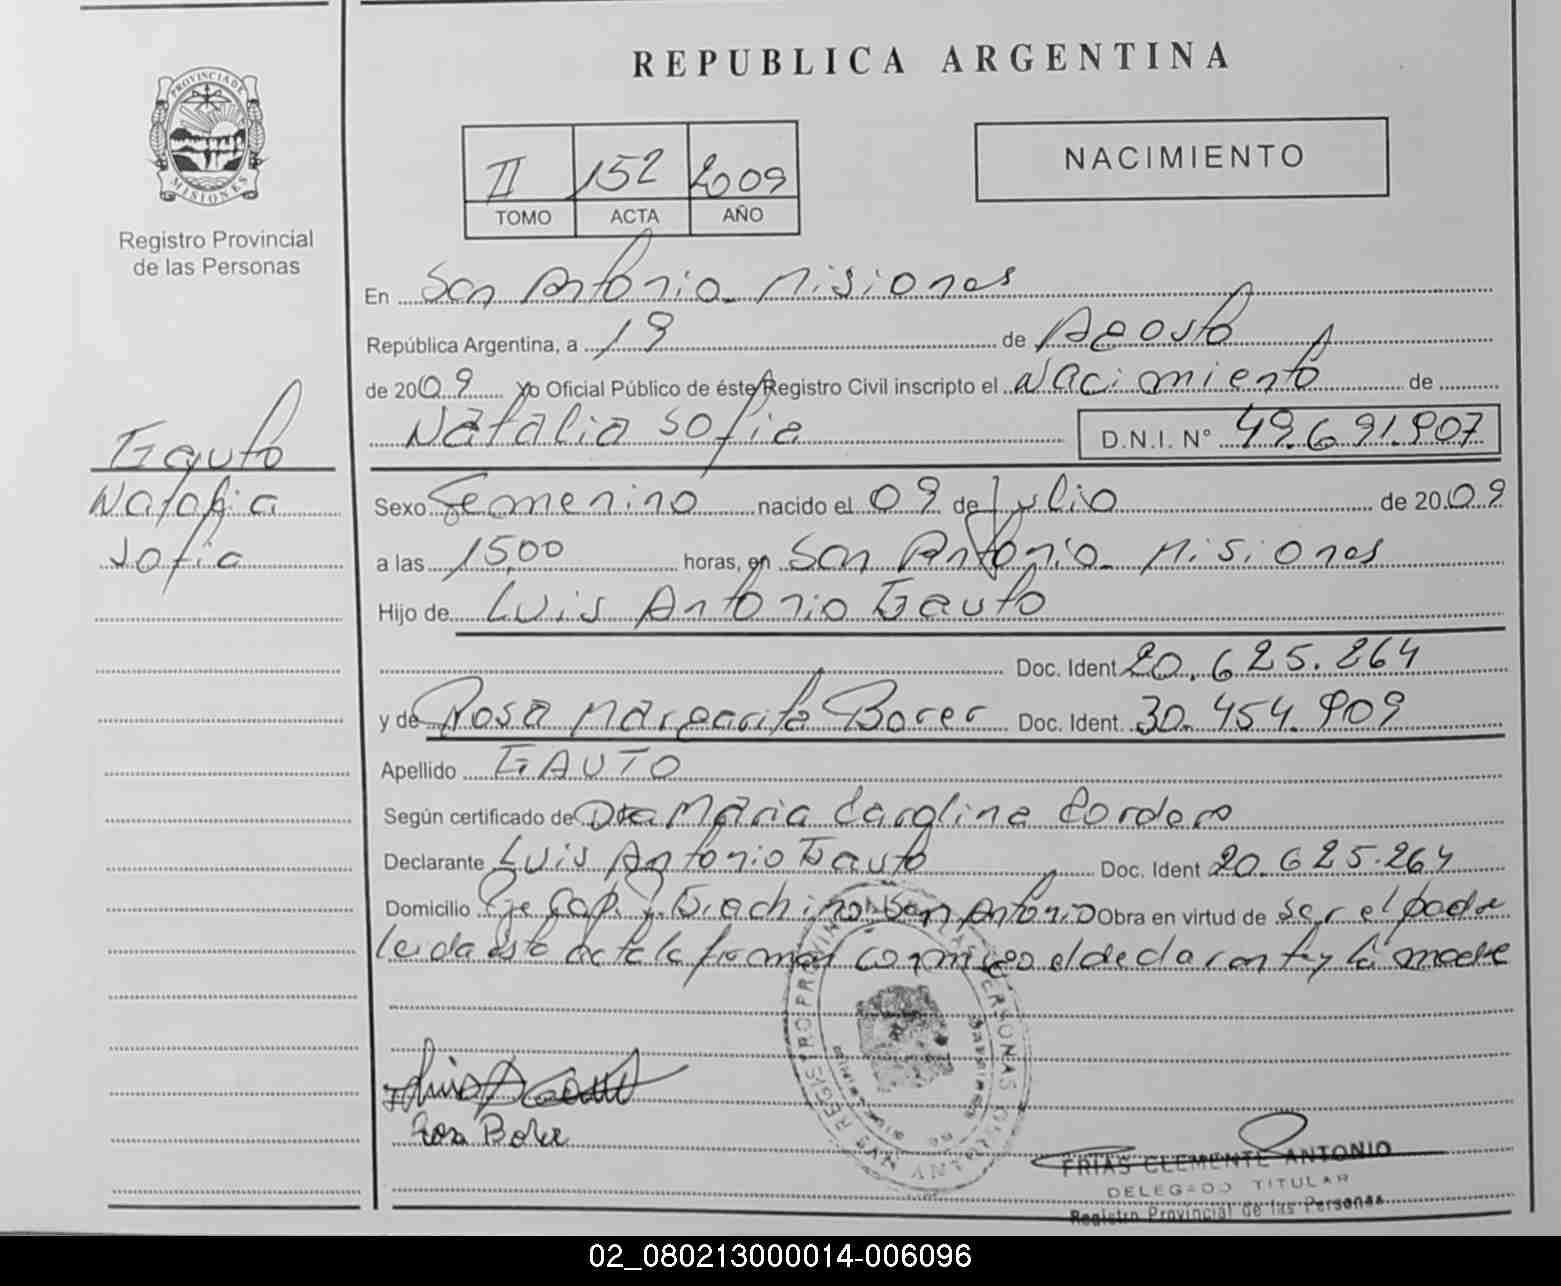 REPUBLICA ARGENTINA
PROVINCIA DE
MISIONES
Registro Provincial
de las Personas
II 152 2009
TOMO ACTA AÑO
NACIMIENTO
En San Antonio Misiones
República Argentina, a 19 de Agosto
de 2009 yo Oficial Público de éste Registro Civil inscripto el Nacimiento de
Natalia Sofia D.N.I. N° 49.691.907
Gauto
Natalia
Sofia
Sexo Femenino nacido el 09 de Julio de 2009
a las 15,00 horas, en San Antonio Misiones
Hijo de Luis Antonio Gauto
Doc. Ident 20.625.264
y de Rosa Margarita Borer Doc. Ident. 30.454.909
Apellido GAUTO
Según certificado de Dra Maria Carolina Cordero
Declarante Luis Antonio Gauto Doc. Ident 20.625.264
Domicilio Cap. Giachino San Antonio Obra en virtud de ser el padre
leida esta acta la firman conmigo el declarante y la madre
Rosa Borer
FRIAS CLEMENTE ANTONIO
DELEGADO TITULAR
Registro Provincial de las Personas
02_080213000014-006096